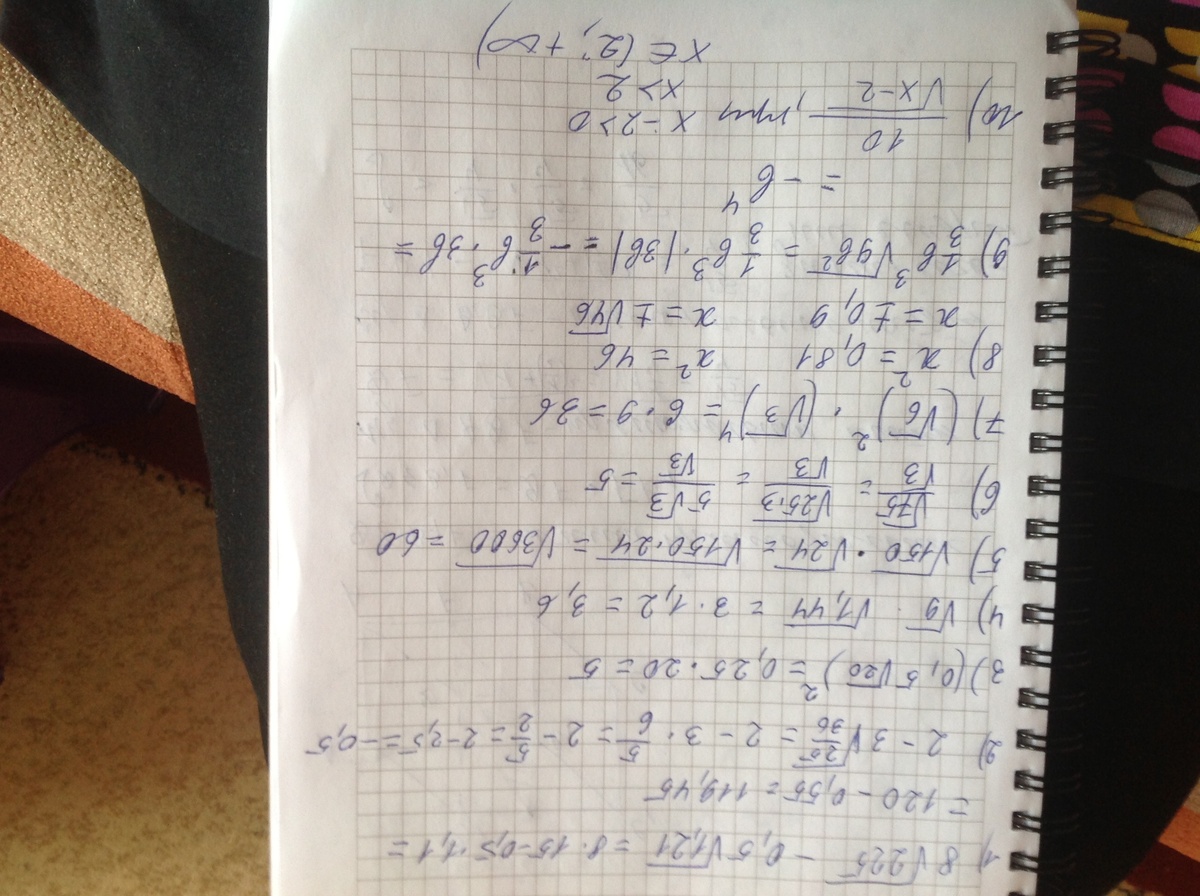 1) 8√225 - 0,5√1,21 = 8·15-0,5·1,1=
= 120 - 0,55 = 119,45
2) 2 - 3√25/36 = 2 - 3·5/6 = 2 - 5/2 = 2-2,5 = -0,5
3) (0,5√20)² = 0,25·20 = 5
4) √9 · √1,44 = 3·1,2 = 3,6
5) √150 · √24 = √150·24 = √3600 = 60
6) √75/√3 = √25·3/√3 = 5√3/√3 = 5
7) (√6)² · (√3)⁴ = 6·9 = 36
8) x² = 0,81 x² = 46
x = ±0,9 x = ±√46
9) 1/3 b³ √9b² = 1/3 b³·|3b| = -1/3 b³·3b =
= -b⁴
10) 10/√x-2, при x-2>0
x>2
x∈(2; +∞)